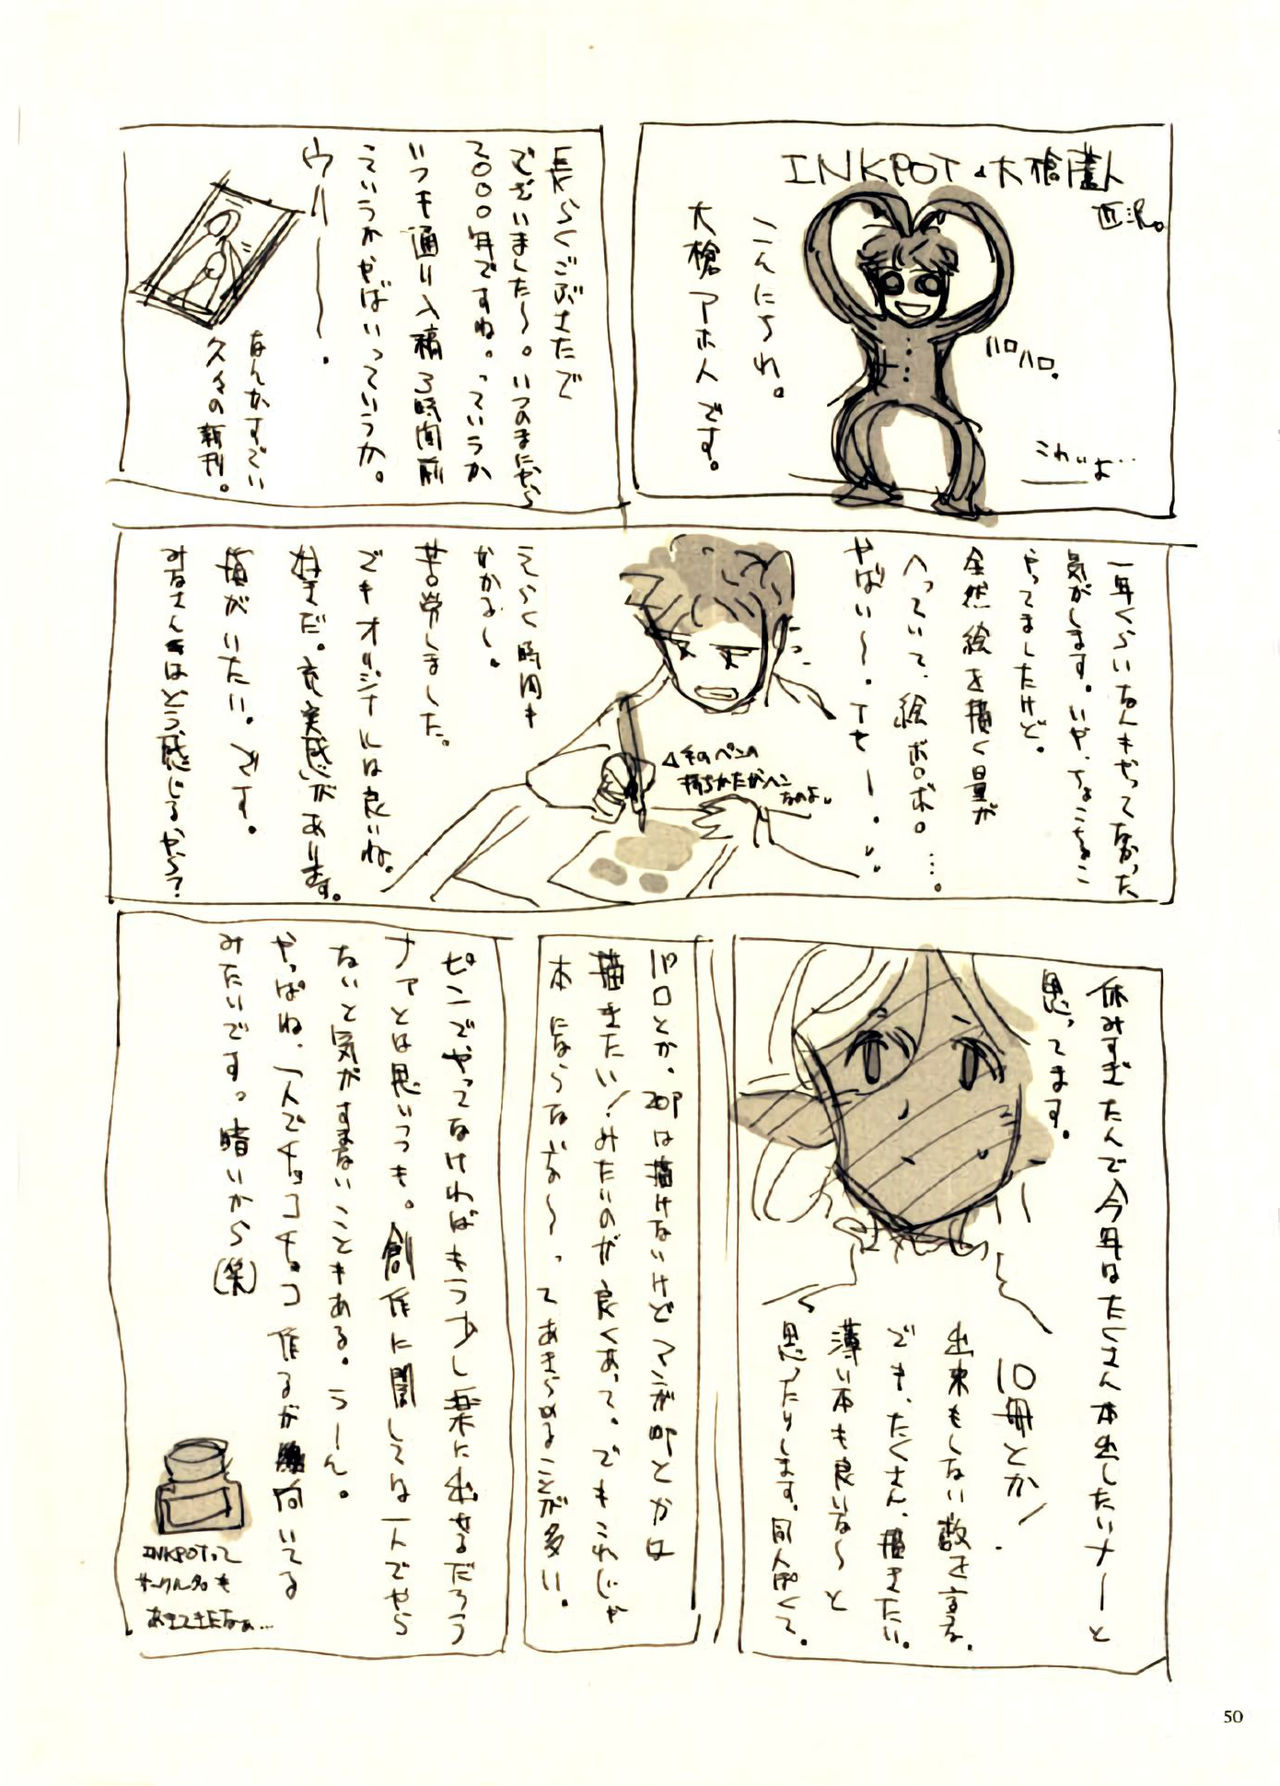 INKPOT
こんにちわ。
大槍アホ人です。
ハロハロ。
長らくごぶさたで
ございました〜。いつのまにやら
2000年ですね。っていうか
いつも通り入稿3時間前
ていうかやばいっていうか。
ウリーーー。
なんかすでに
久々の新刊。
一年くらいなんもやってなかった
気がします。いや、ちょこちょこ
やってましたけど。
全然絵を描く量が
へっていて、絵ボロボロ。…。
やばい〜。
えらく時間も
かかるし。
苦労しました。
でもオリジナルは良いね。
好きだ。充実感があります。
指がいたい。です。
みなさんはどう感じるかな?
このペンの
持ちかたがヘン
なのよ。
休みすぎたんで今年はたくさん本出したいナーと
思ってます。
10冊とか!
出来もしない数を言うな。
でも、たくさん、描きたい。
薄い本も良いな〜と
思ったりします。同人ぽくて。
ハロとか。20Pは描けないけどマンガ8Pとかは
描きたい!みたいのが良くあって。でもこれじゃ
本にならないな〜ってあきらめることが多い。
ピンでやってなければもう少し楽に出せるだろう
ナァとは思いつつも。創作に関しては一人でやら
ないと気がすまないこともある。うーん。
やっぱね、一人でチョコチョコ作るが向いてる
みたいです。暗いから(笑)
INKPOTって
サークル名も
あきてきたなぁ…
50